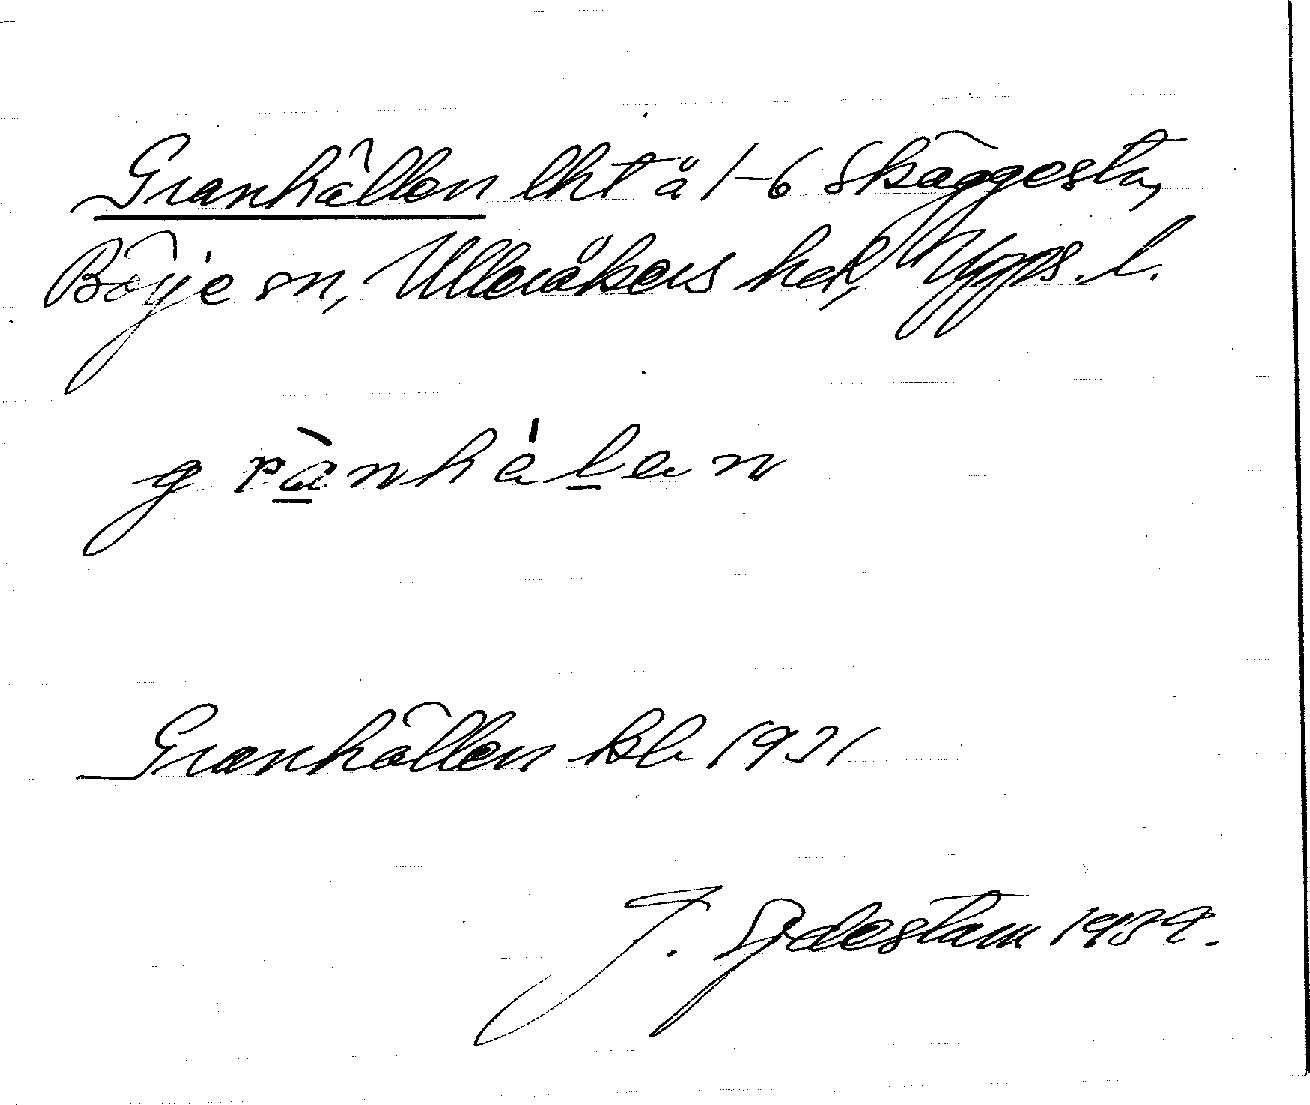 Granhällen lht å 1-6 Skäggesta,
Börje sn, Ulleråkers hd, Upps. l.
grànhálen
Granhällen Bl. 1931
J. Sydestam 1939.